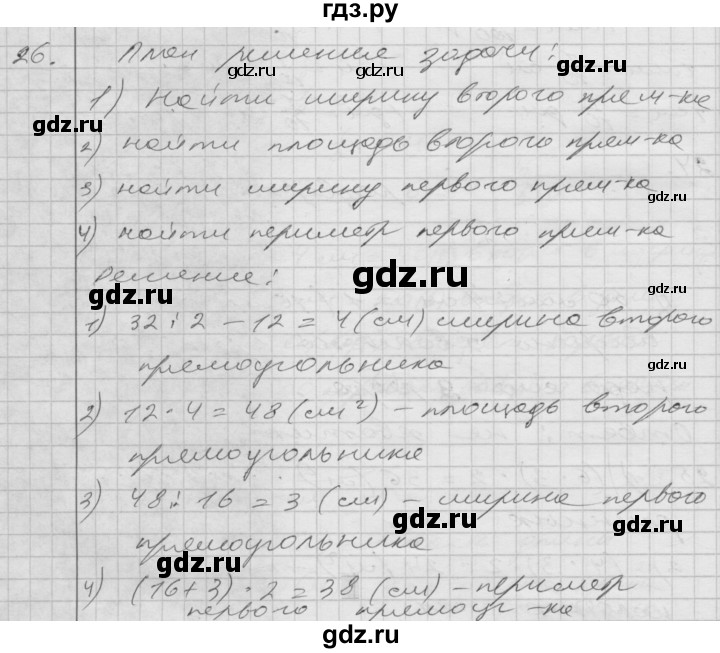 гдз.ру
26. План решения задачи:
gdz.ru gdz.ru
1) Найти ширину второго прям-ка
gdz.ru
2) найти площадь второго прям-ка
3) найти ширину первого прям-ка
gdz.ru
4) найти периметр первого прям-ка
Решение:
gdz.ru
gdz.ru
1) 32 : 2 - 12 = 4 (см) ширина второго
gdz.ru
прямоугольника
gdz.ru
2) 12 · 4 = 48 (см²) - площадь второго
прямоугольника
3) 48 : 16 = 3 (см) - ширина первого
gdz.ru gdz.ru
прямоугольника
gdz.ru
4) (16+3) · 2 = 38 (см) - периметр
gdz.ru
первого прямоуг-ка
gdz.ru